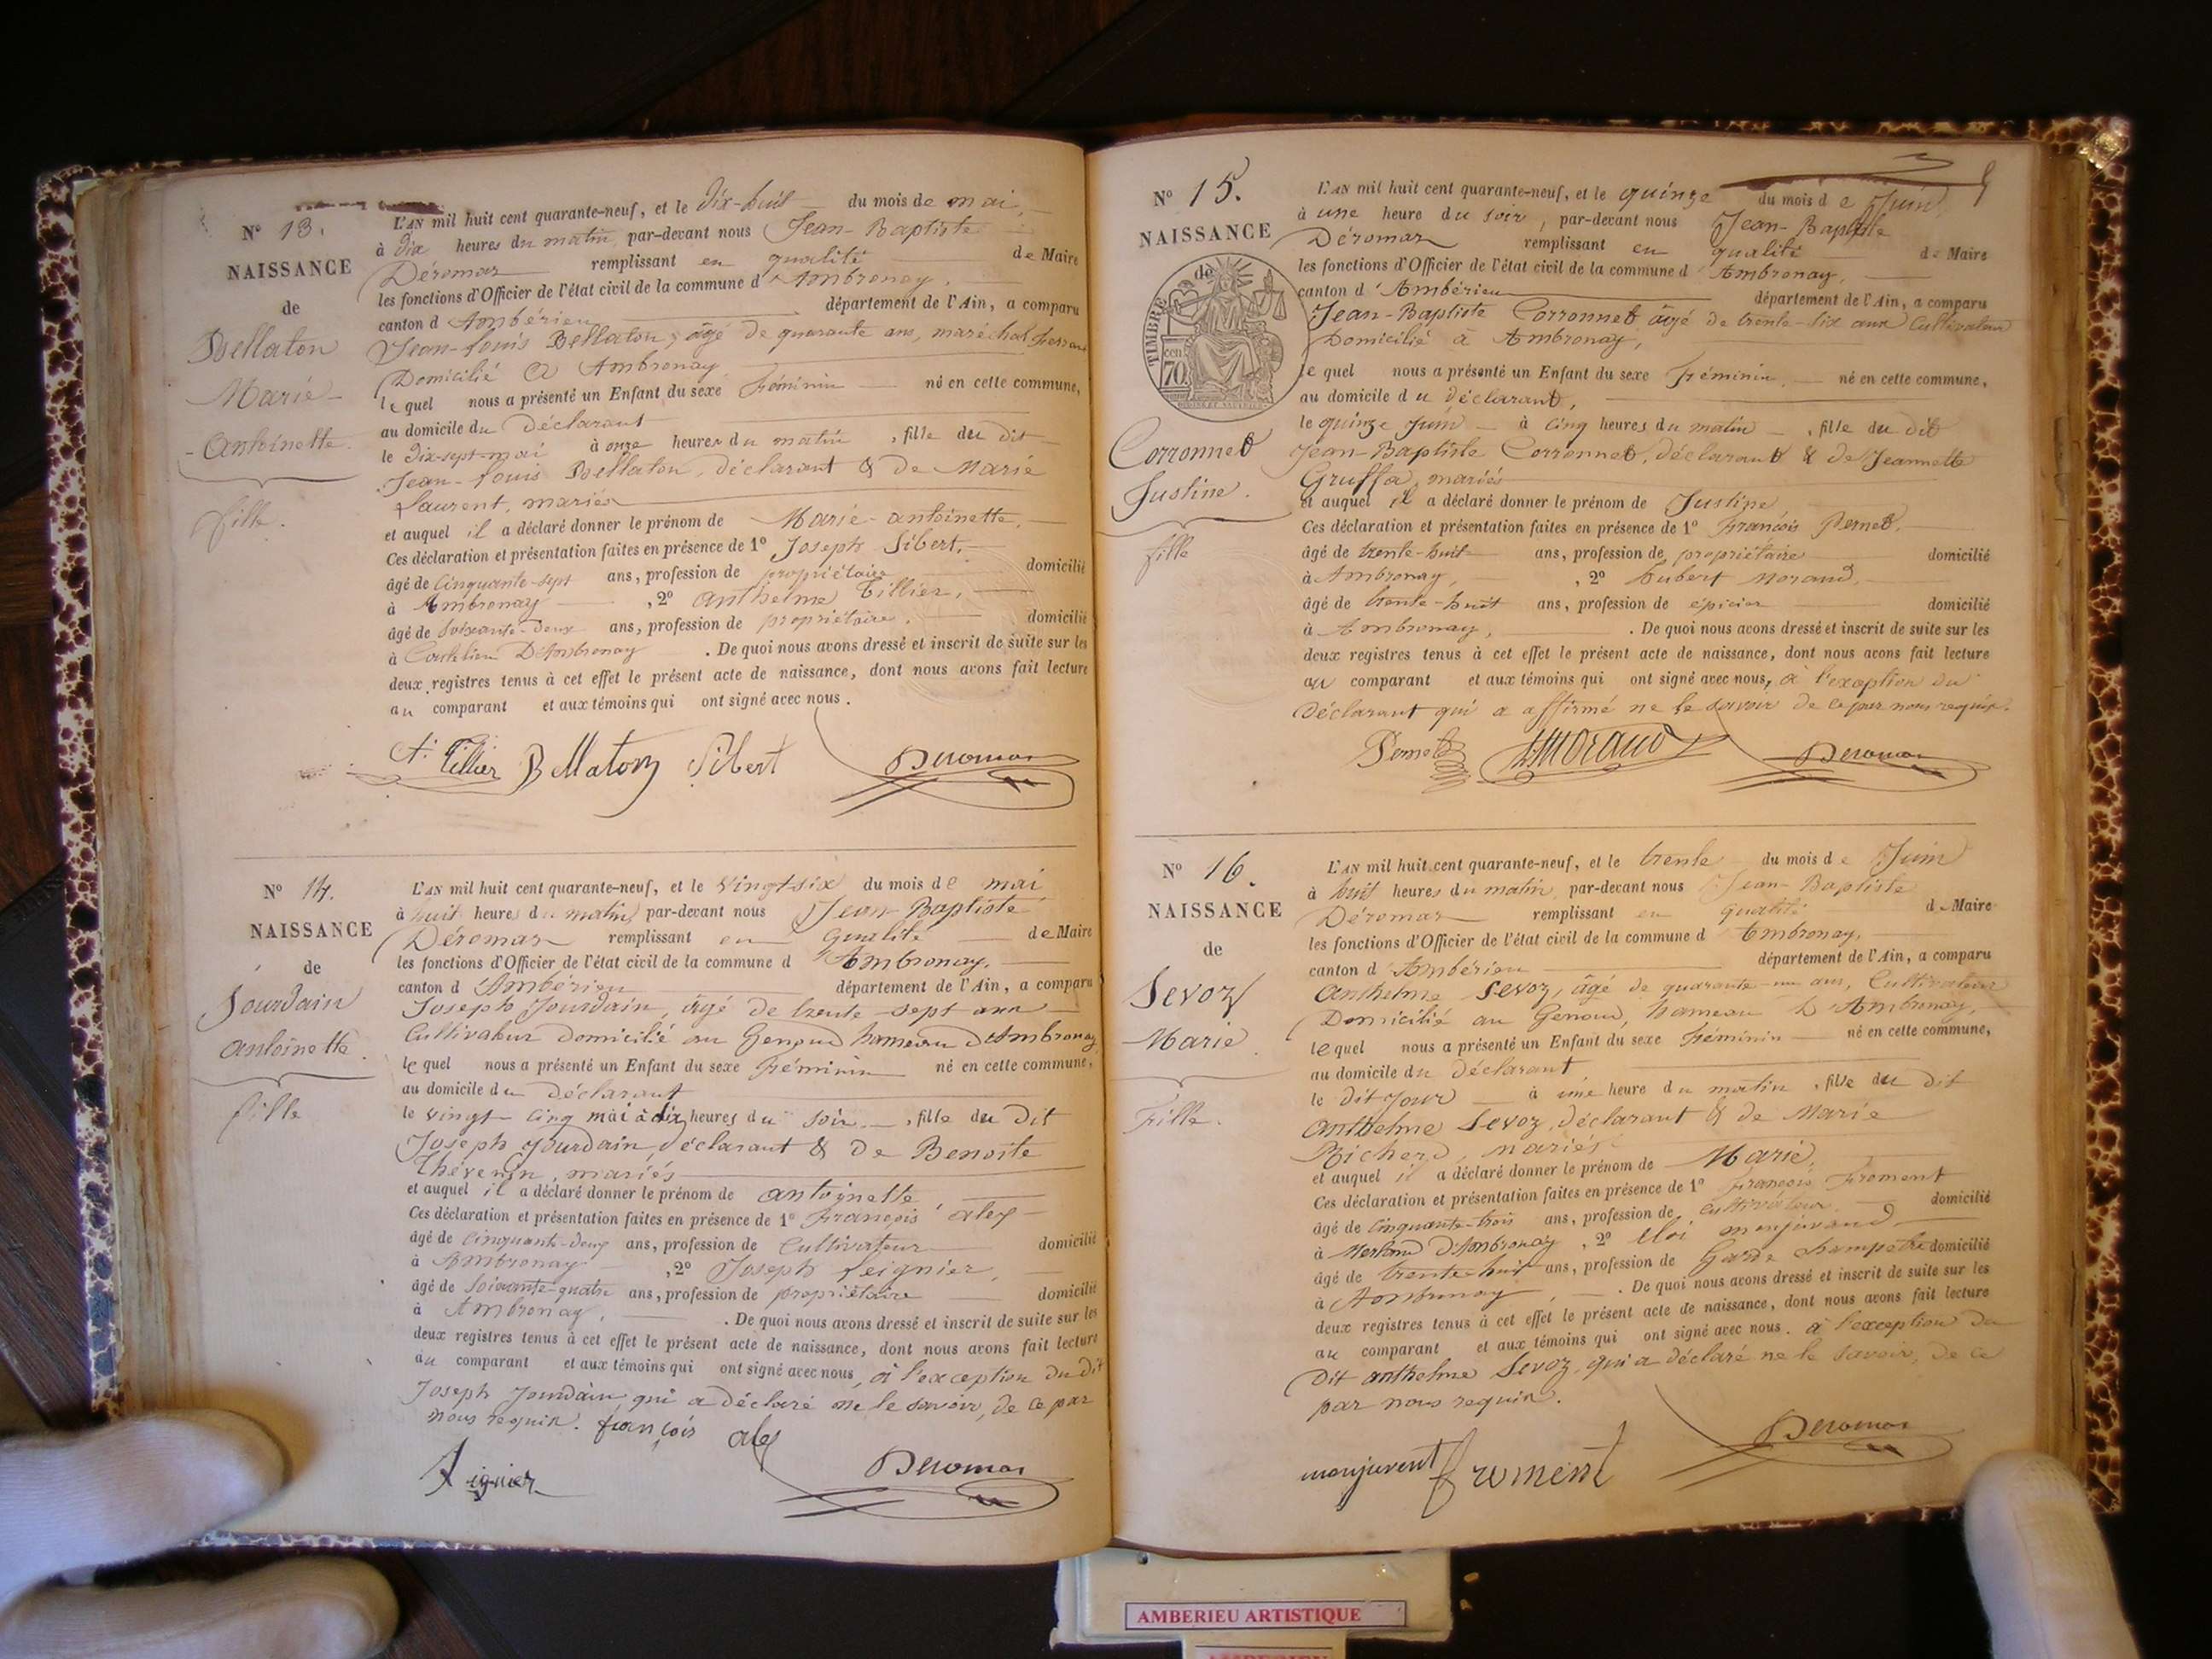 N° 13.
NAISSANCE
de
Bellaton
Marie-
Antoinette.
fille.
L'AN mil huit cent quarante-neuf, et le dix-huit du mois de mai,
à dix heures du matin, par-devant nous Jean-Baptiste
Déromas remplissant en qualité de Maire
les fonctions d'Officier de l'état civil de la commune d'Ambronay,
canton d'Ambérieu département de l'Ain, a comparu
Jean-Louis Bellaton, âgé de quarante ans, maréchal ferrant
Domicilié à Ambronay
lequel nous a présenté un Enfant du sexe féminin né en cette commune,
au domicile du déclarant
le dix-sept mai à onze heures du matin, fille du dit
Jean-Louis Bellaton, déclarant & de Marie
Laurent, mariés
et auquel il a déclaré donner le prénom de Marie-antoinette,
Ces déclaration et présentation faites en présence de 1° Joseph Sibert,
âgé de Cinquante-sept ans, profession de propriétaire domicilié
à Ambronay, 2° Anthelme Tillier,
âgé de soixante-deux ans, profession de propriétaire, domicilié
à D'Ambronay. De quoi nous avons dressé et inscrit de suite sur les
deux registres tenus à cet effet le présent acte de naissance, dont nous avons fait lecture
au comparant et aux témoins qui ont signé avec nous.
A. Tillier Bellaton Sibert Deromas
N° 14.
NAISSANCE
de
Jourdain
Antoinette.
fille
L'AN mil huit cent quarante-neuf, et le vingt-six du mois de mai
à huit heures du matin, par-devant nous Jean-Baptiste
Déromas remplissant en qualité de Maire
les fonctions d'Officier de l'état civil de la commune d'Ambronay,
canton d'Ambérieu département de l'Ain, a comparu
Joseph Jourdain, âgé de trente-sept ans
Cultivateur domicilié au Genoud hameau d'Ambronay
lequel nous a présenté un Enfant du sexe féminin né en cette commune,
au domicile du Déclarant
le vingt-cinq mai à dix heures du soir, fille du dit
Joseph Jourdain, déclarant & de Benoite
Thévenin, mariés
et auquel il a déclaré donner le prénom de antoinette,
Ces déclaration et présentation faites en présence de 1° François alex
âgé de cinquante-deux ans, profession de Cultivateur domicilié
à Ambronay, 2° Joseph Leignier,
âgé de soixante-quatre ans, profession de propriétaire domicilié
à Ambronay,. De quoi nous avons dressé et inscrit de suite sur les
deux registres tenus à cet effet le présent acte de naissance, dont nous avons fait lecture
au comparant et aux témoins qui ont signé avec nous, à l'exception du dit
Joseph Jourdain qui a déclaré ne le savoir, de ce par
nous requis. françois alex
Deromas
N° 15.
NAISSANCE
de
TIMBRE
cen
70
Corronnet
Justine.
fille
L'AN mil huit cent quarante-neuf, et le quinze du mois de Juin
à une heure du soir, par-devant nous Jean-Baptiste
Déromas remplissant en qualité de Maire
les fonctions d'Officier de l'état civil de la commune d'Ambronay,
canton d'Ambérieu département de l'Ain, a comparu
Jean-Baptiste Corronnet âgé de trente-six ans Cultivateur
Domicilié à Ambronay,
lequel nous a présenté un Enfant du sexe féminin, né en cette commune,
au domicile du déclarant,
le quinze Juin à cinq heures du matin, fille du dit
Jean-Baptiste Corronnet, déclarant & de Jeannette
Gruffa, mariés
et auquel il a déclaré donner le prénom de Justine
Ces déclaration et présentation faites en présence de 1° François Pernet,
âgé de trente-huit ans, profession de propriétaire domicilié
à Ambronay, 2° hubert Morand,
âgé de trente-huit ans, profession de épicier domicilié
à Ambronay,. De quoi nous avons dressé et inscrit de suite sur les
deux registres tenus à cet effet le présent acte de naissance, dont nous avons fait lecture
au comparant et aux témoins qui ont signé avec nous, à l'exception du
Déclarant qui a affirmé ne le savoir de ce par nous requis.
Pernet hMorand Deromas
N° 16.
NAISSANCE
de
Sevoz
Marie
Fille.
L'AN mil huit cent quarante-neuf, et le trente du mois de Juin
à huit heures du matin, par-devant nous Jean-Baptiste
Déromas remplissant en qualité de Maire
les fonctions d'Officier de l'état civil de la commune d'Ambronay,
canton d'Ambérieu département de l'Ain, a comparu
Anthelme Sevoz, âgé de quarante-un ans, Cultivateur
Domicilié au Genoud, hameau D'Ambronay,
lequel nous a présenté un Enfant du sexe féminin né en cette commune,
au domicile du déclarant
le dit jour à une heure du matin, fille du dit
Anthelme Sevoz, déclarant & de Marie
Richerd, mariés
et auquel il a déclaré donner le prénom de Marie,
Ces déclaration et présentation faites en présence de 1° François Froment
âgé de cinquante-trois ans, profession de cultivateur domicilié
à Merland D'Ambronay, 2° Eloi monjuvend
âgé de trente-huit ans, profession de Garde Champêtre domicilié
à Ambronay,. De quoi nous avons dressé et inscrit de suite sur les
deux registres tenus à cet effet le présent acte de naissance, dont nous avons fait lecture
au comparant et aux témoins qui ont signé avec nous. à l'exception du
Dit anthelme Sevoz, qui a déclaré ne le savoir, de ce
par nous requis.
monjuvent froment Deromas
AMBERIEU ARTISTIQUE